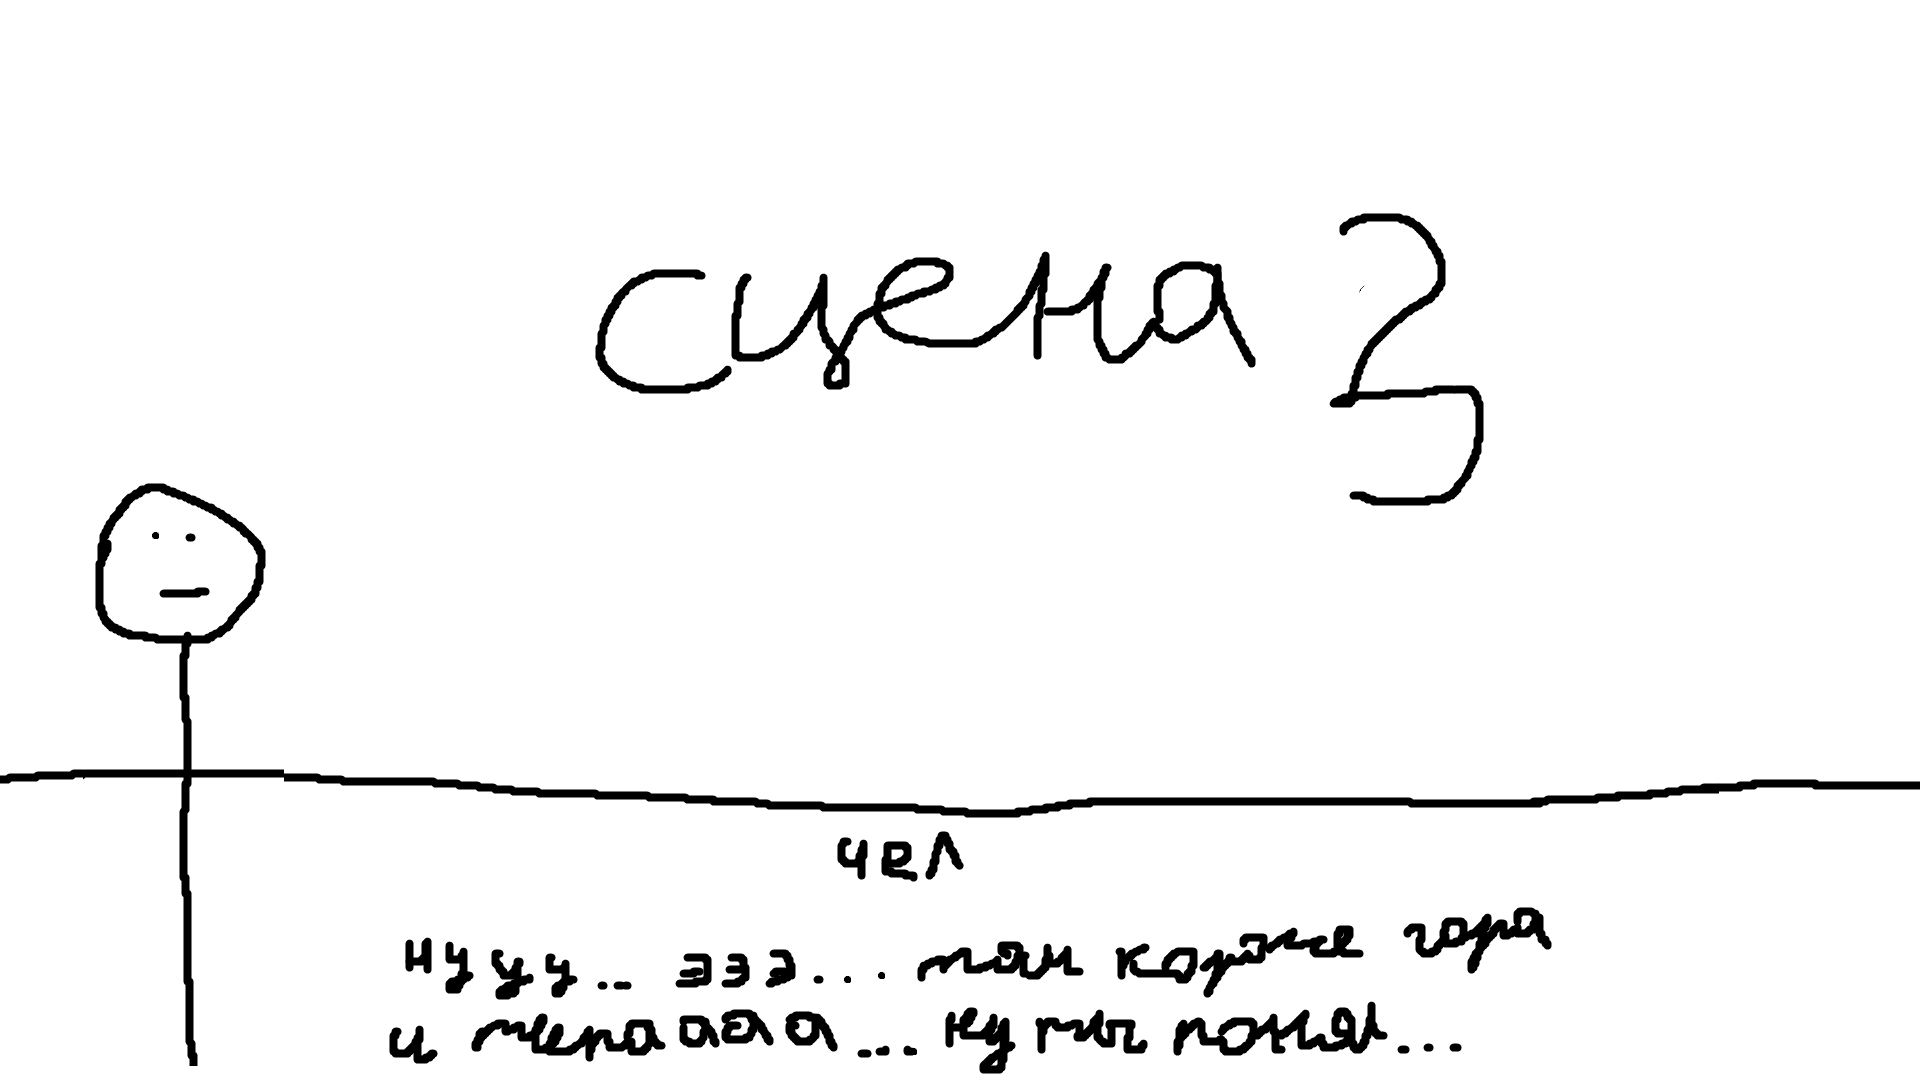 сцена 3
чел
нууу... эээ... там короче гора
и тераааа... ну ты понял...